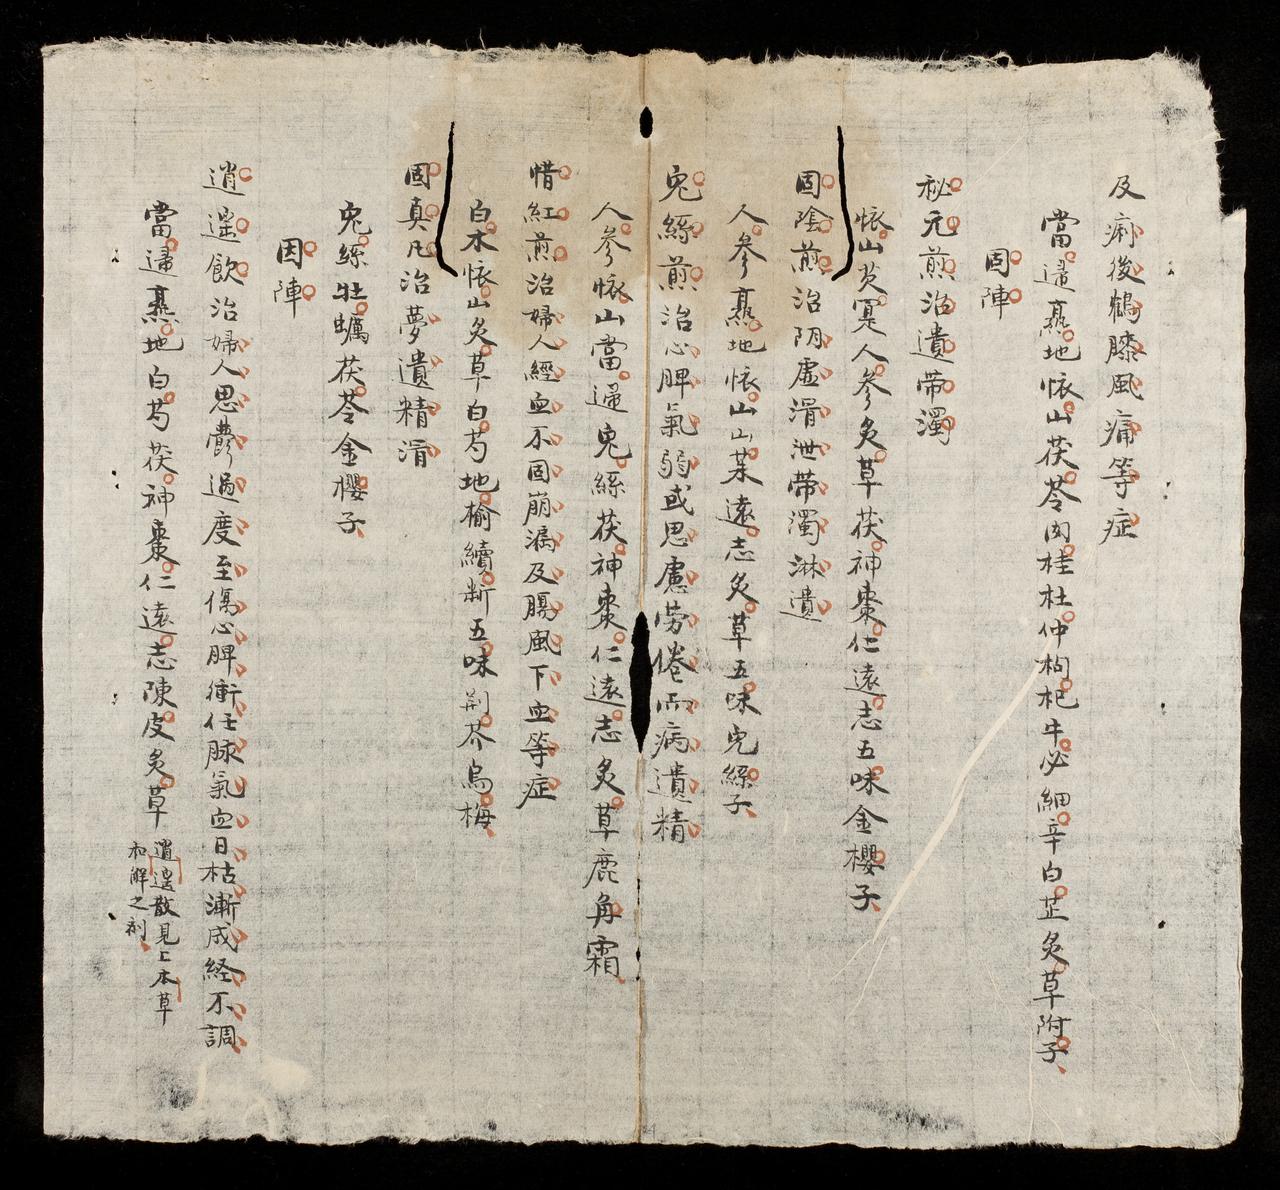 及痢後鶴膝風痛等症
當歸熟地懐山茯苓肉桂杜仲枸杞牛必細辛白芷炙草附子
固陣
秘元煎治遺帶濁
懐山芡寔人參炙草茯神棗仁遠志五味金櫻子
固陰煎治阴虛滑泄帶濁淋遺
人參熟地懐山山茱遠志炙草五味兔絲子
兔絲煎治心脾氣弱或思慮勞倦而病遺精
人參懐山當歸兔絲茯神棗仁遠志炙草鹿角霜
惜紅煎治婦人經血不固崩漏及腸風下血等症
白朮懐山炙草白芍地榆續断五味荆芥烏梅
固真凡治夢遺精滑
兔絲牡蠣茯苓金櫻子
因陣
逍遥飲治婦人思欝過度至傷心脾衝任脉氣血日枯漸成経不調
當歸熟地白芍茯神棗仁遠志陳皮炙草
逍遥散見上本草
和解之剂